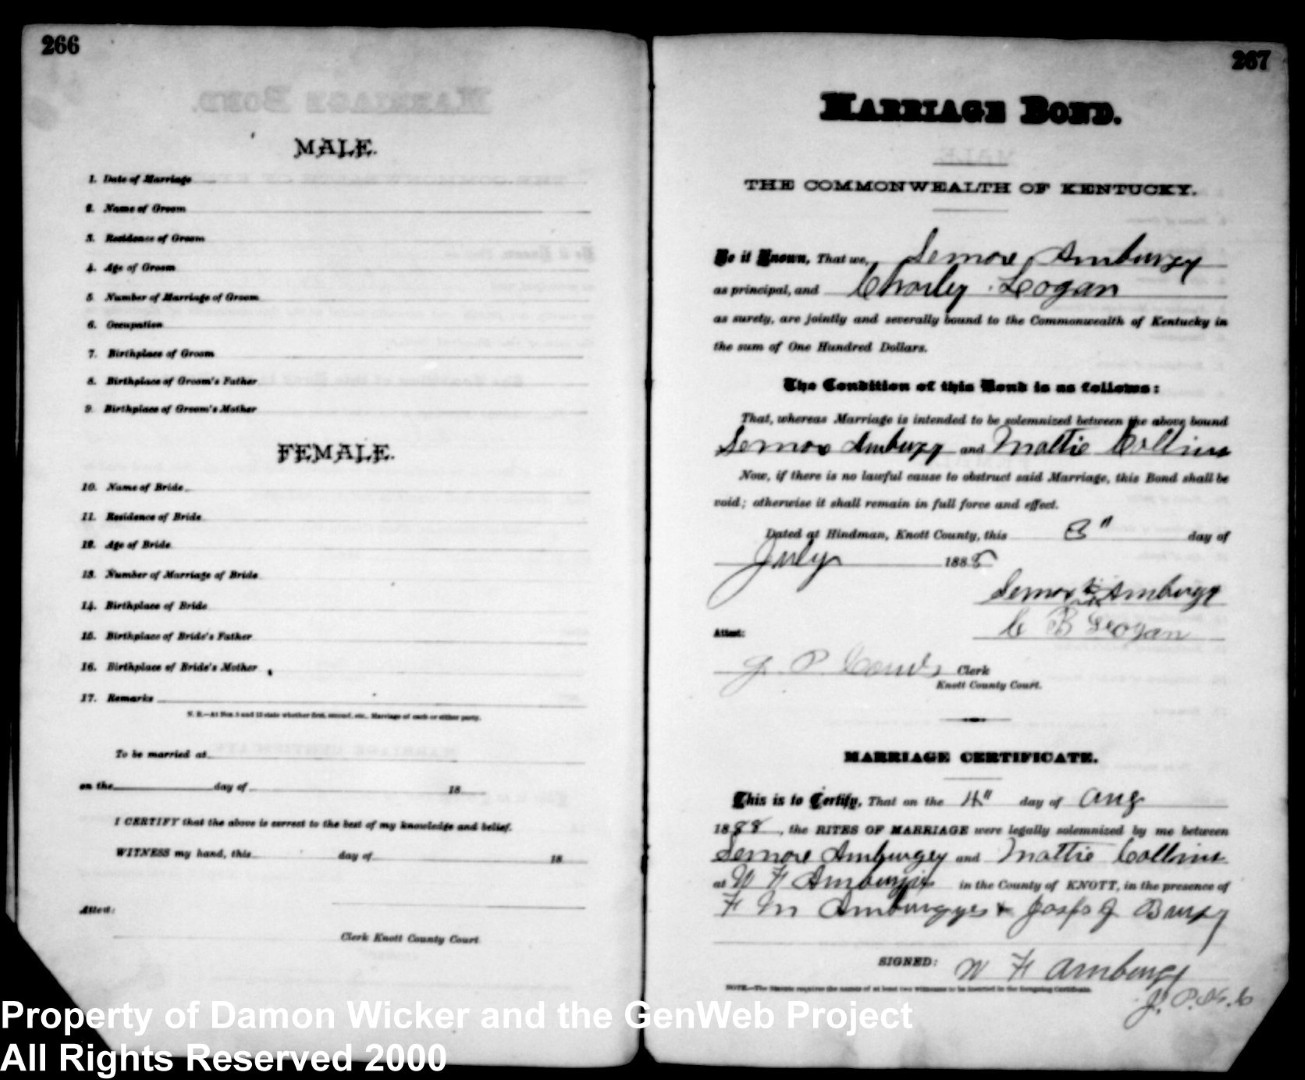 266
MALE.
1. Date of Marriage
2. Name of Groom
3. Residence of Groom
4. Age of Groom
5. Number of Marriage of Groom
6. Occupation
7. Birthplace of Groom
8. Birthplace of Groom's Father
9. Birthplace of Groom's Mother
FEMALE.
10. Name of Bride
11. Residence of Bride
12. Age of Bride
13. Number of Marriage of Bride
14. Birthplace of Bride
15. Birthplace of Bride's Father
16. Birthplace of Bride's Mother
17. Remarks
N. B.—At Nos. 5 and 13 state whether first, second, etc., Marriage of each or either party.
To be married at
on the day of 18
I CERTIFY that the above is correct to the best of my knowledge and belief.
WITNESS my hand, this day of 18
Attest:
Clerk Knott County Court
267
MARRIAGE BOND.
THE COMMONWEALTH OF KENTUCKY.
Be it Known, That we, Semore Amburgy
as principal, and Charley Logan
as surety, are jointly and severally bound to the Commonwealth of Kentucky in
the sum of One Hundred Dollars.
The Condition of this Bond is as follows:
That, whereas Marriage is intended to be solemnized between the above bound
Semore Amburgy and Mattie Collins
Now, if there is no lawful cause to obstruct said Marriage, this Bond shall be
void; otherwise it shall remain in full force and effect.
Dated at Hindman, Knott County, this 3" day of
July 1888
Semore Amburgy
C B Logan
Attest:
J. P. Clerk
Knott County Court.
MARRIAGE CERTIFICATE.
This is to Certify, That on the 4" day of Aug
1888, the RITES OF MARRIAGE were legally solemnized by me between
Semore Amburgey and Mattie Collins
at W F in the County of KNOTT, in the presence of
F M
SIGNED: W F Amburgy
NOTE.—The Statute requires the names of at least two witnesses to be inserted in the foregoing Certificate.
J. P. K. C
Property of Damon Wicker and the GenWeb Project
All Rights Reserved 2000